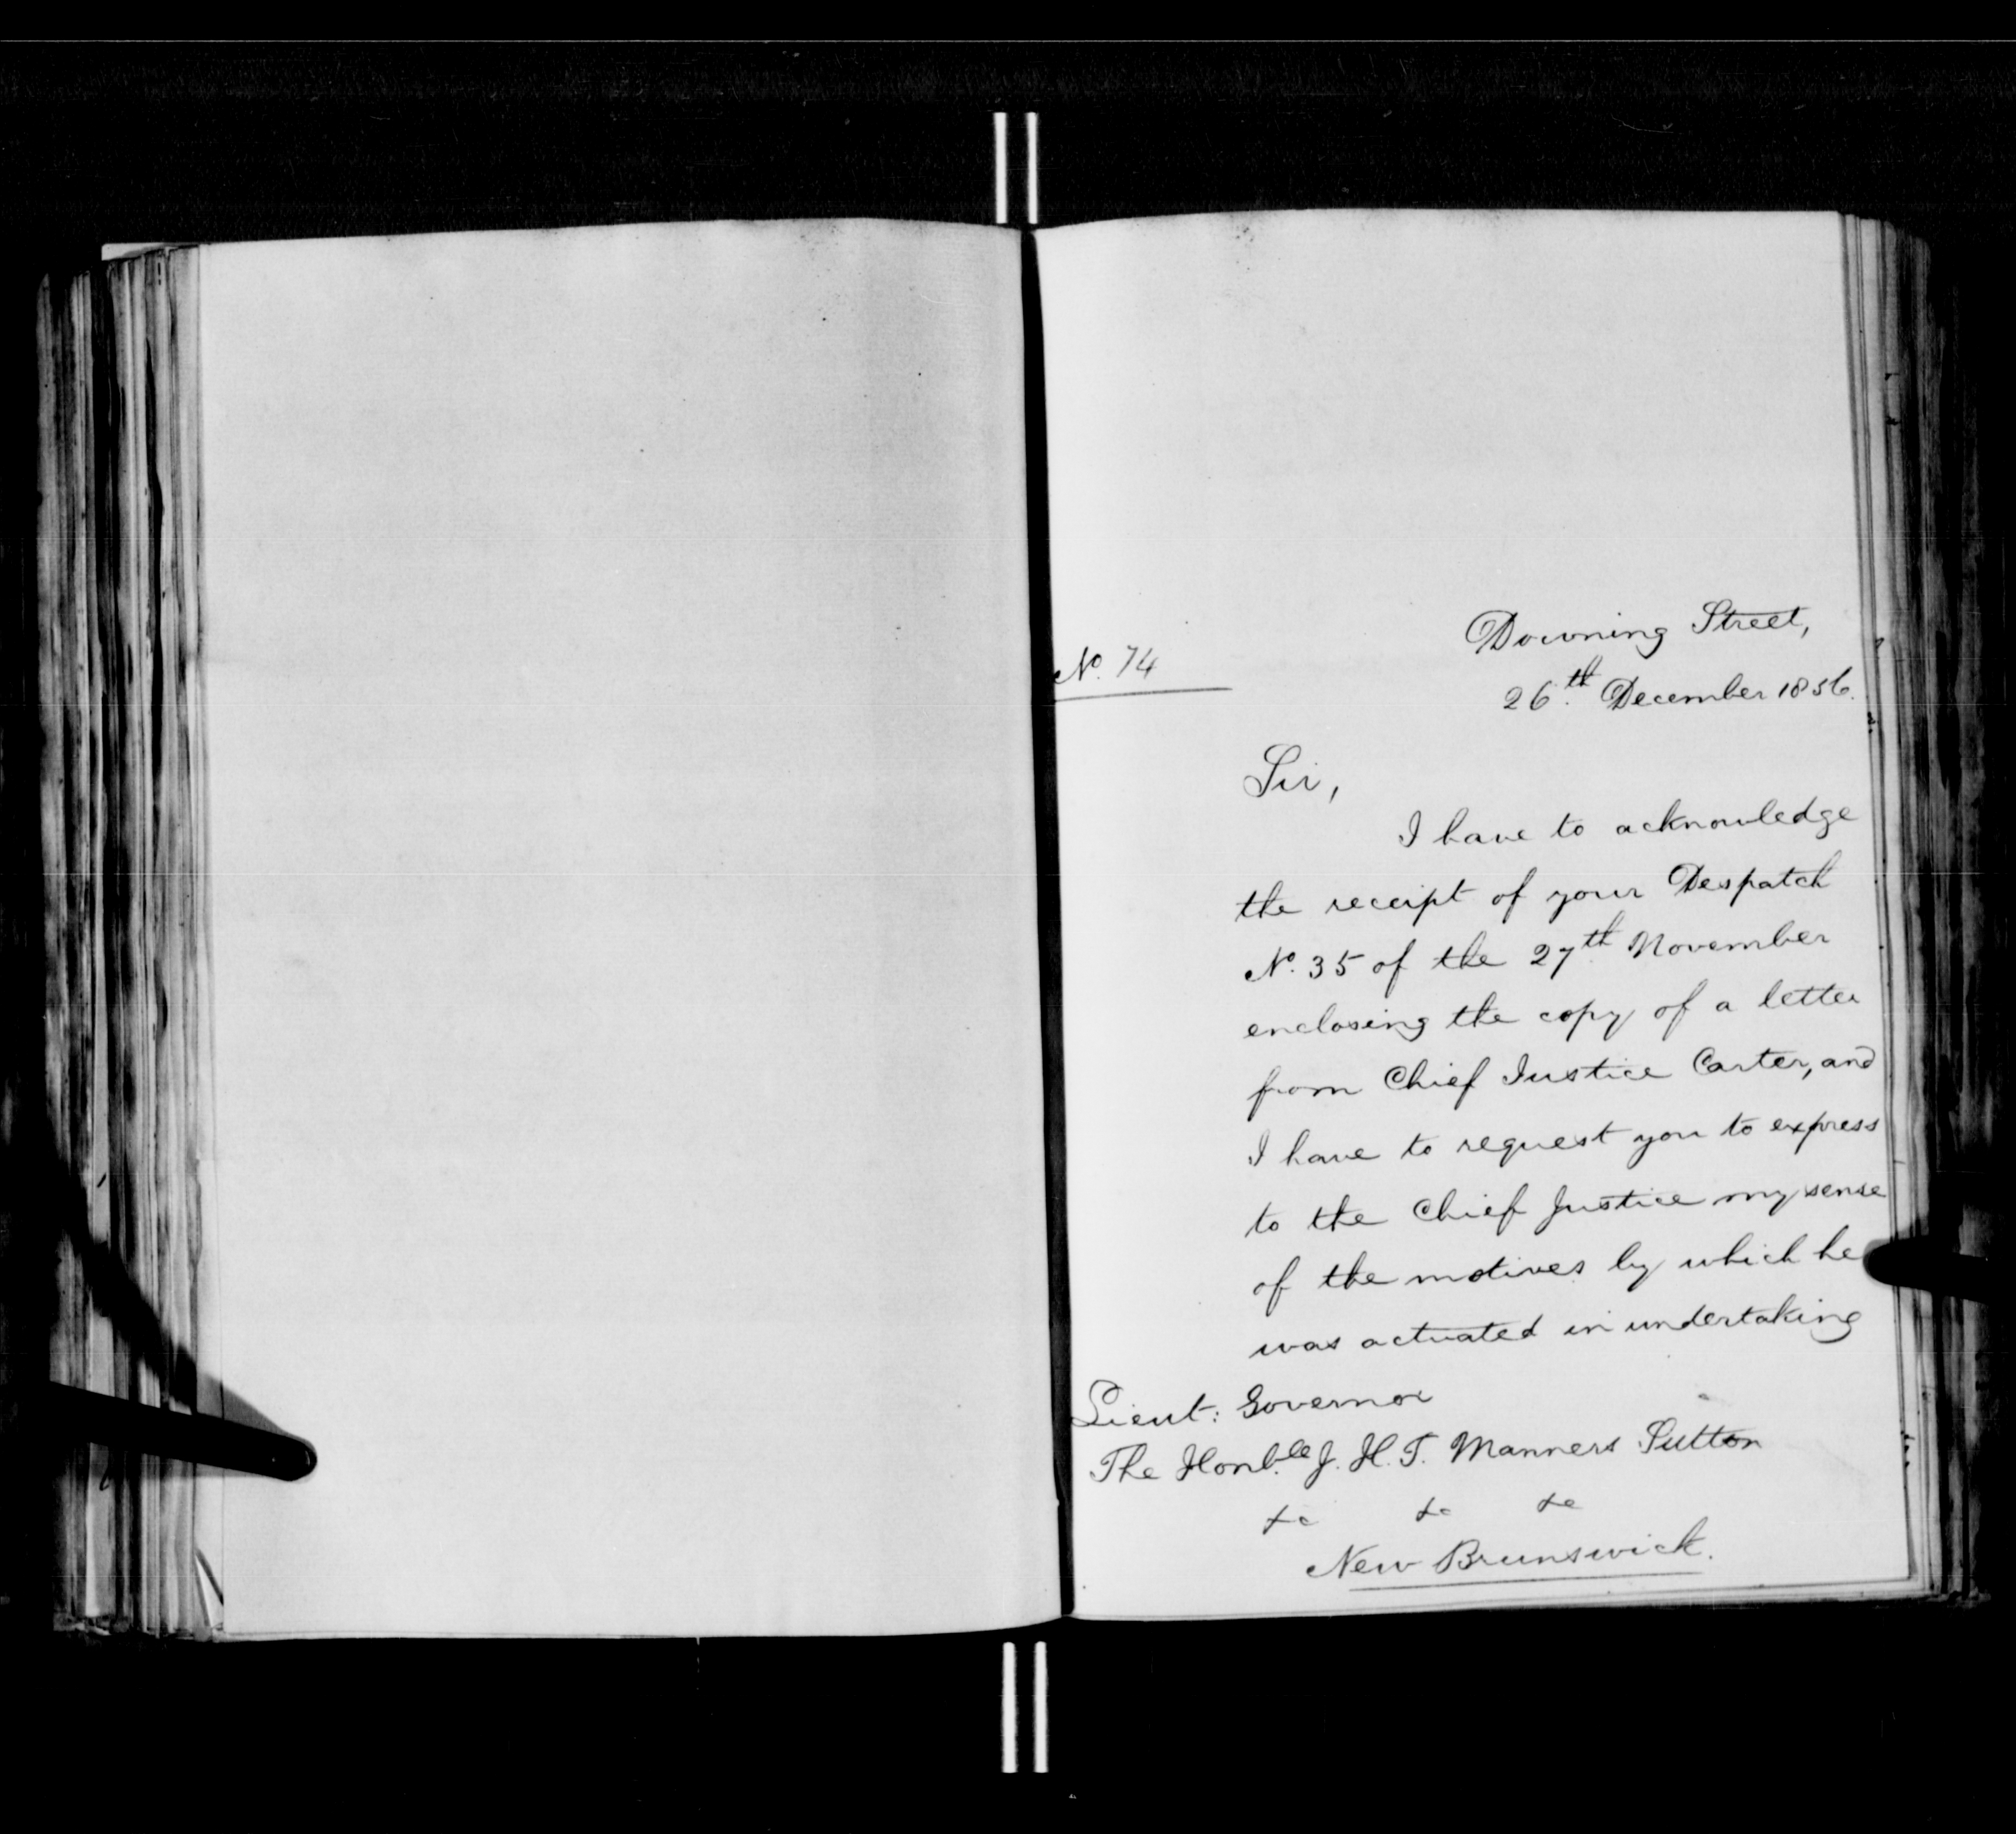 Downing Street,
No. 74
26th December 1856.
Sir,
I have to acknowledge
the receipt of your Despatch
No. 35 of the 27th November
enclosing the copy of a letter
from Chief Justice Carter, and
I have to request you to express
to the Chief Justice my sense
of the motives by which he
was actuated in undertaking
Lieut: Governor
The Honble J. H. T. Manners Sutton
&c &c &c
New Brunswick.